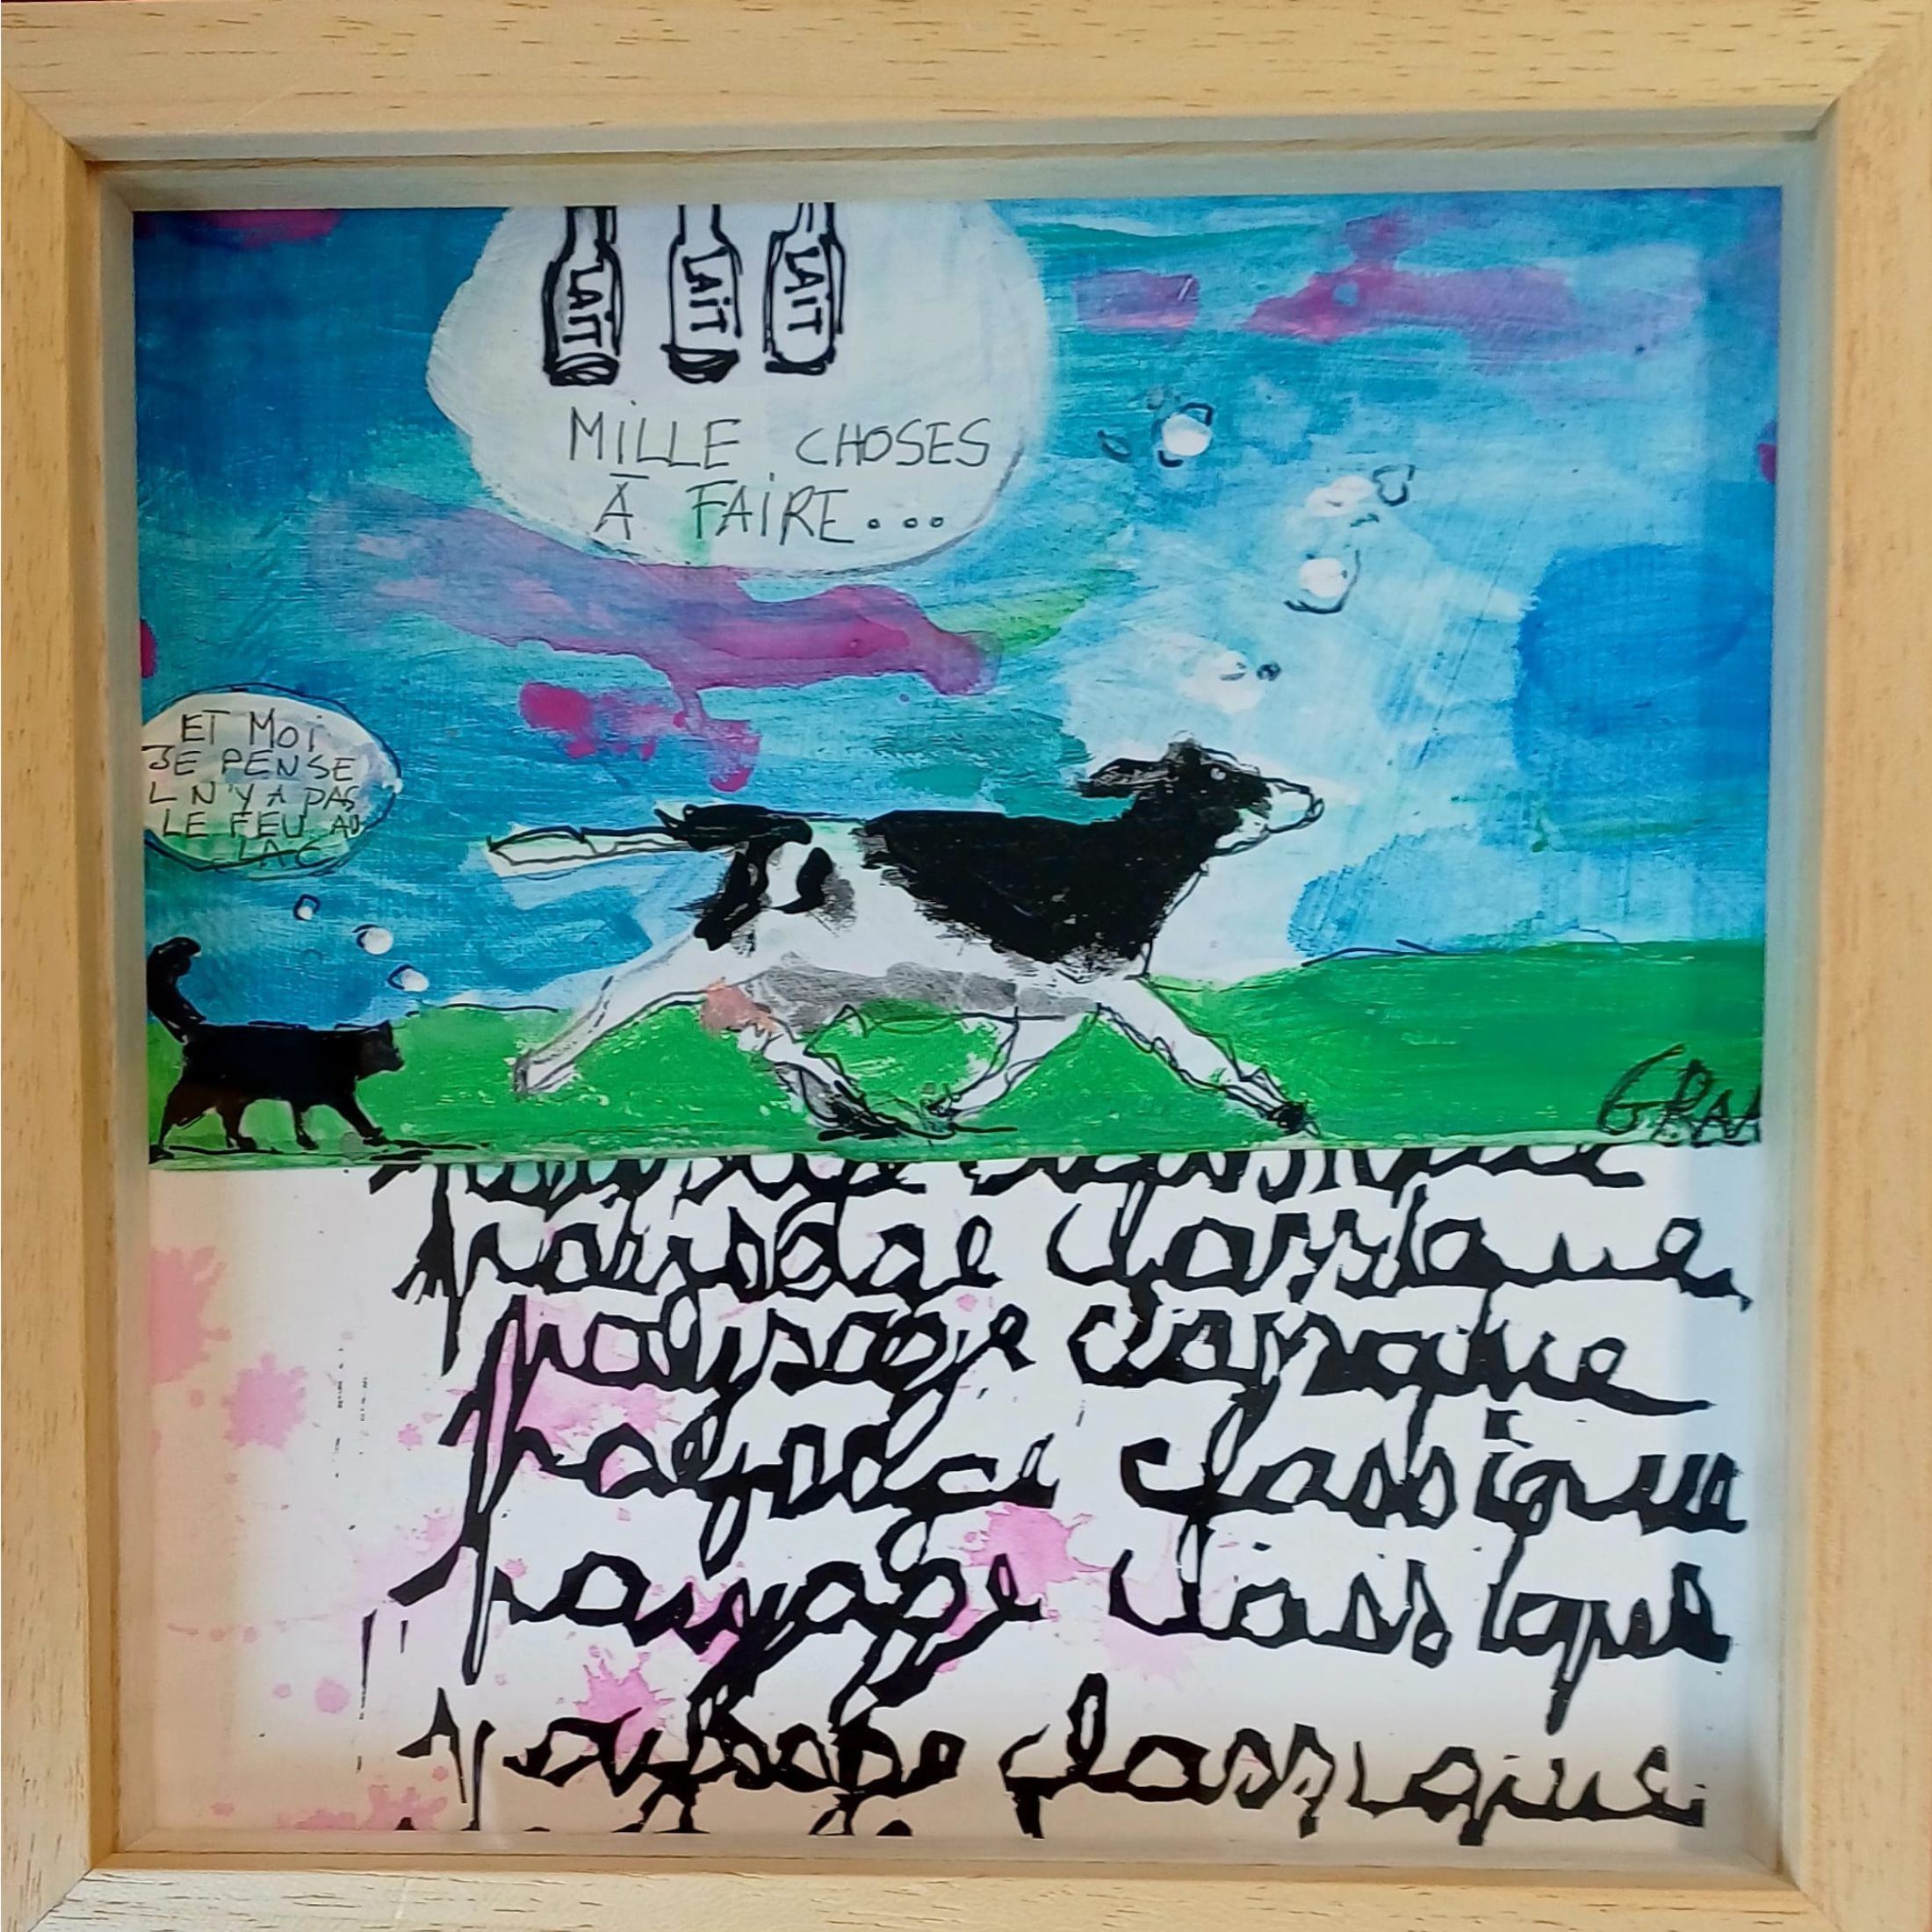 LAIT LAIT LAIT
MILLE CHOSES
À FAIRE...
ET MOI
JE PENSE
L N'Y A PAS
LE FEU AU
LAC
GRA
paysage classique
paysage classique
paysage classique
paysage classique
paysage classique